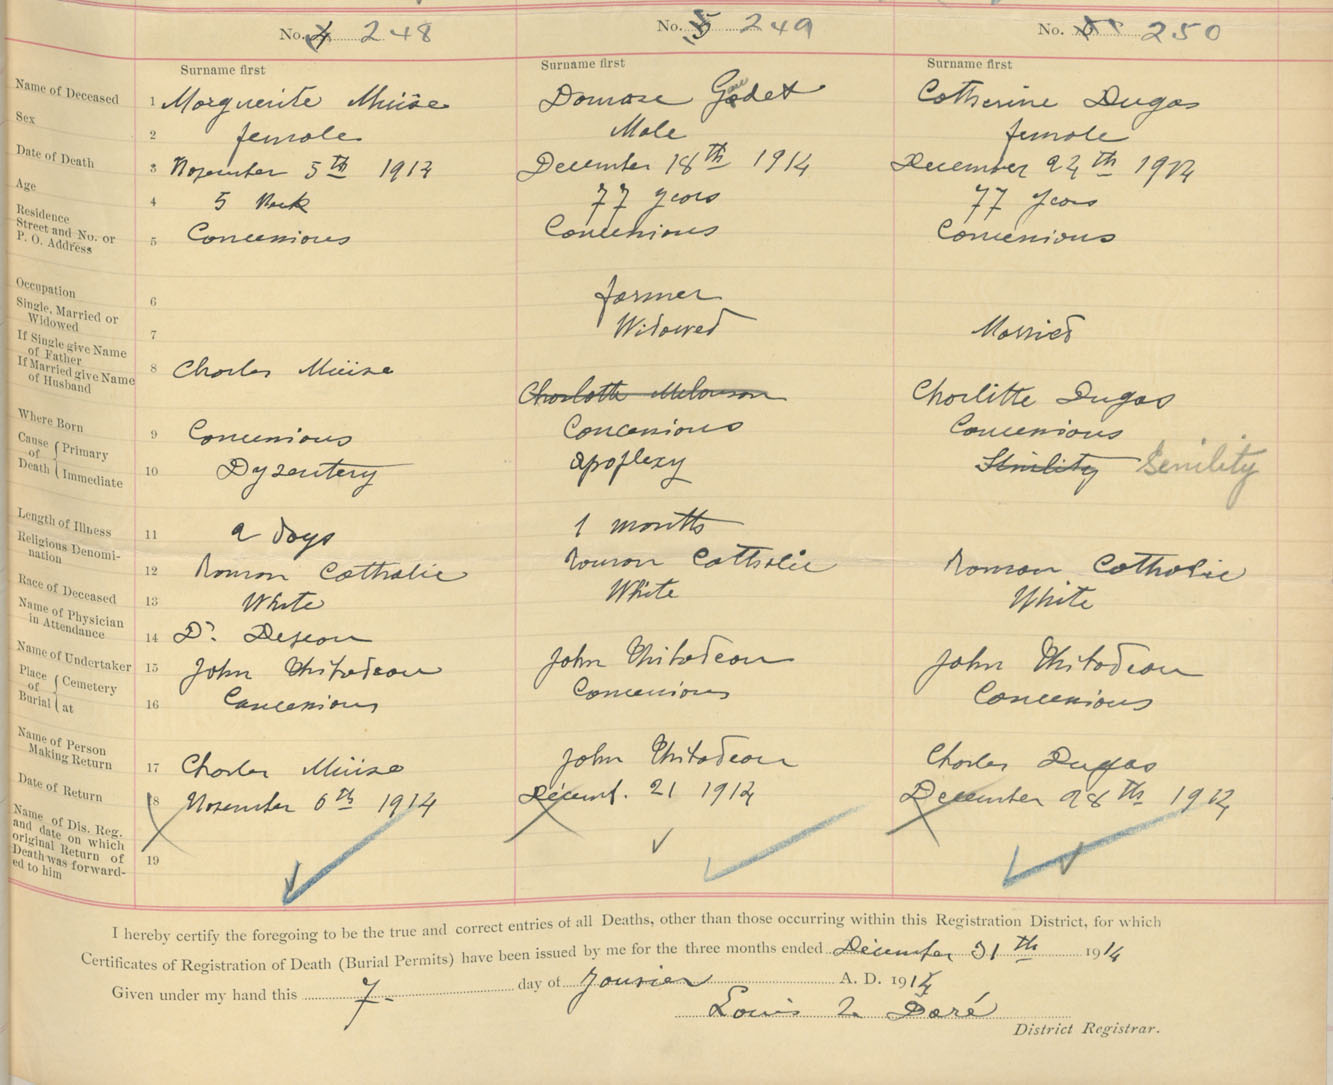 No. 4 248 No. 5 249 No. 6 250
Surname first Surname first Surname first
Name of Deceased 1 Marguerite Muise Damase Gadet Catherine Dugas
Sex 2 female Male female
Date of Death 3 November 5th 1914 December 18th 1914 December 24th 1914
Age 4 5 77 years 77 years
Residence
Street and No. or
P. O. Address 5 Concessious Concessious Concessious
Occupation 6 farmer
Single, Married or
Widowed 7 Widowed Married
If Single give Name
of Father
If Married give Name
of Husband 8 Charles Muise Charlotte Melanson Charlitte Dugas
Where Born 9 Concessious Concessious Concessious
Cause of Death { Primary
Immediate 10 Dyzentery apoplexy Senility Senility
Length of Illness 11 2 days 1 months
Religious Denomi-
nation 12 roman Catholic roman Catholic roman Catholic
Race of Deceased 13 White White White
Name of Physician
in Attendance 14 Dr.
Name of Undertaker 15 John Thibodeau John Thibodeau John Thibodeau
Place of Burial { Cemetery
at 16 Concessious Concessious Concessious
Name of Person
Making Return 17 Charles Muise John Thibodeau Charles Dugas
Date of Return 18 November 6th 1914 Décemb. 21 1914 December 28th 1914
Name of Dis. Reg.
and date on which
original Return of
Death was forward-
ed to him 19
I hereby certify the foregoing to be the true and correct entries of all Deaths, other than those occurring within this Registration District, for which
Certificates of Registration of Death (Burial Permits) have been issued by me for the three months ended Décember 31th 1914
Given under my hand this 7- day of Janvier A. D. 1914
Louis
District Registrar.